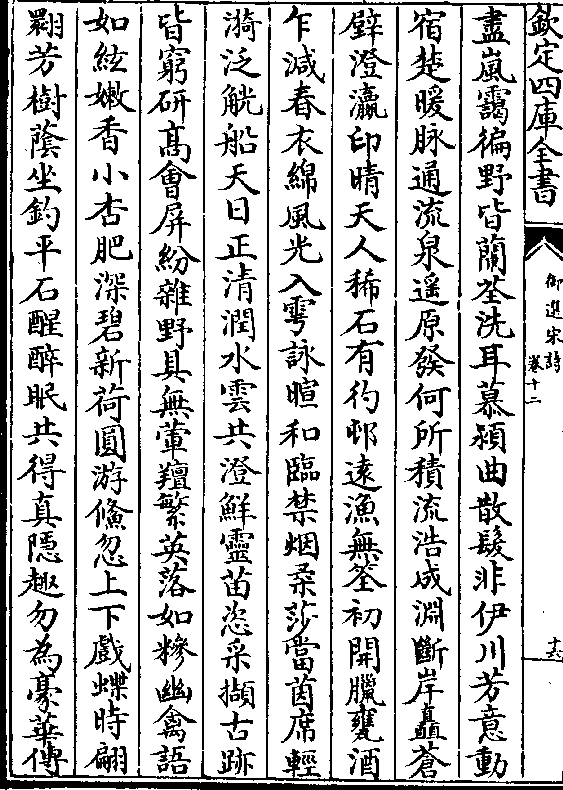 欽定四庫全書
御選宋詩
卷十二
十六
盡嵐靄徧野皆蘭荃洗耳慕潁曲散髮非伊川芳意動
宿楚暖脉通流泉遥原發何所積流浩成淵斷岸矗蒼
壁澄瀛印晴天人稀石有彴邨遠漁無筌初開臘甕酒
乍減春衣綿風光入雩詠暄和臨禁烟柔莎當茵席輕
漪泛觥船天日正清潤水雲共澄鮮靈苗恣采擷古跡
皆窮研高會屏紛雜野具無葷羶繁英落如糝幽禽語
如絃嫩香小杏肥深碧新荷圓游鯈忽上下戲蝶時翩
翾芳樹蔭坐釣平石醒醉眠共得真隱趣勿為豪華傳